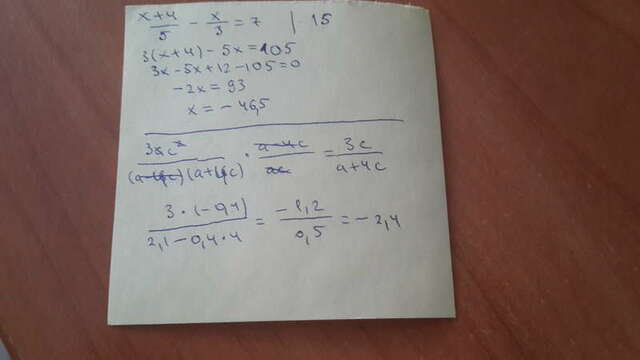 x+4/5 - x/3 = 7 | 15
3(x+4) - 5x = 105
3x - 5x + 12 - 105 = 0
-2x = 93
x = -46,5
3ac²/(a-4c)(a+4c) · a-4c/ac = 3c/a+4c
3·(-0,4)/2,1-0,4·4 = -1,2/0,5 = -2,4